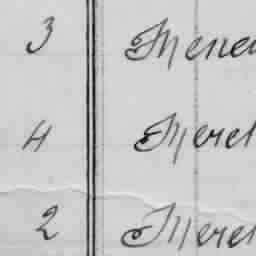 3 Mene
4 Meret
2 Meret